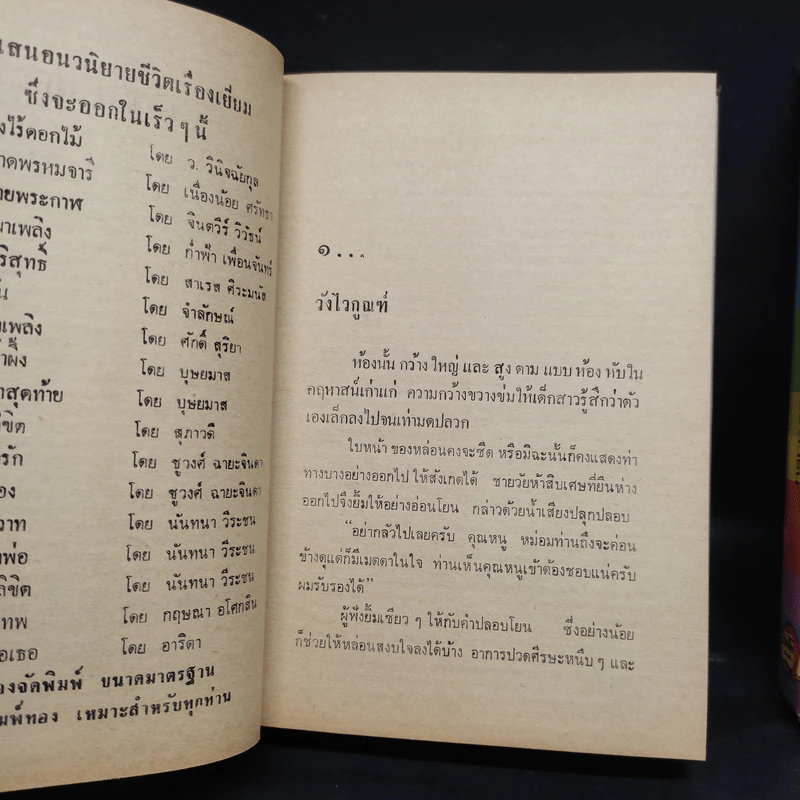 เสนอนวนิยายชีวิตเรื่องเยี่ยม
ซึ่งจะออกในเร็ว ๆ นี้
งไร้ดอกไม้ โดย ว. วินิจฉัยกุล
าดพรหมจารี โดย เนื่องน้อย ศรัทธา
ายพระกาฬ โดย จินตวีร์ วิวัธน์
มาเพลิง โดย ก่ำฟ้า เพื่อนจันทร์
ริสุทธิ์ โดย สาเรส ศิระมนัส
น โดย จำลักษณ์
เพลิง โดย ศักดิ์ สุริยา
ผึ้ง โดย บุษยมาส
าสุดท้าย โดย บุษยมาส
ขิต โดย สุภาวดี
รัก โดย ชูวงศ์ ฉายะจินดา
อง โดย ชูวงศ์ ฉายะจินดา
วาท โดย นันทนา วีระชน
พ่อ โดย นันทนา วีระชน
ลิขิต โดย นันทนา วีระชน
เทพ โดย กฤษณา อโศกสิน
อเธอ โดย อาริตา
องจัดพิมพ์ ขนาดมาตรฐาน
มพ์ทอง เหมาะสำหรับทุกท่าน
๑...
วังไวกูณฑ์
ห้องนั้น กว้าง ใหญ่ และ สูง ตาม แบบ ห้อง ทับใน
คฤหาสน์เก่าแก่ ความกว้างขวางข่มให้เด็กสาวรู้สึกว่าตัว
เองเล็กลงไปจนเท่ามดปลวก
ใบหน้า ของหล่อนคงจะซีด หรือมิฉะนั้นก็คงแสดงท่า
ทางบางอย่างออกไป ให้สังเกตได้ ชายวัยห้าสิบเศษที่ยืนห่าง
ออกไปจึงยิ้มให้อย่างอ่อนโยน กล่าวด้วยน้ำเสียงปลุกปลอบ
“อย่ากลัวไปเลยครับ คุณหนู หม่อมท่านถึงจะค่อน
ข้างดุแต่ก็มีเมตตาในใจ ท่านเห็นคุณหนูเข้าต้องชอบแน่ครับ
ผมรับรองได้”
ผู้ฟังยิ้มเซียว ๆ ให้กับคำปลอบโยน ซึ่งอย่างน้อย
ก็ช่วยให้หล่อนสงบใจลงได้บ้าง อาการปวดศีรษะหนึบ ๆ และ